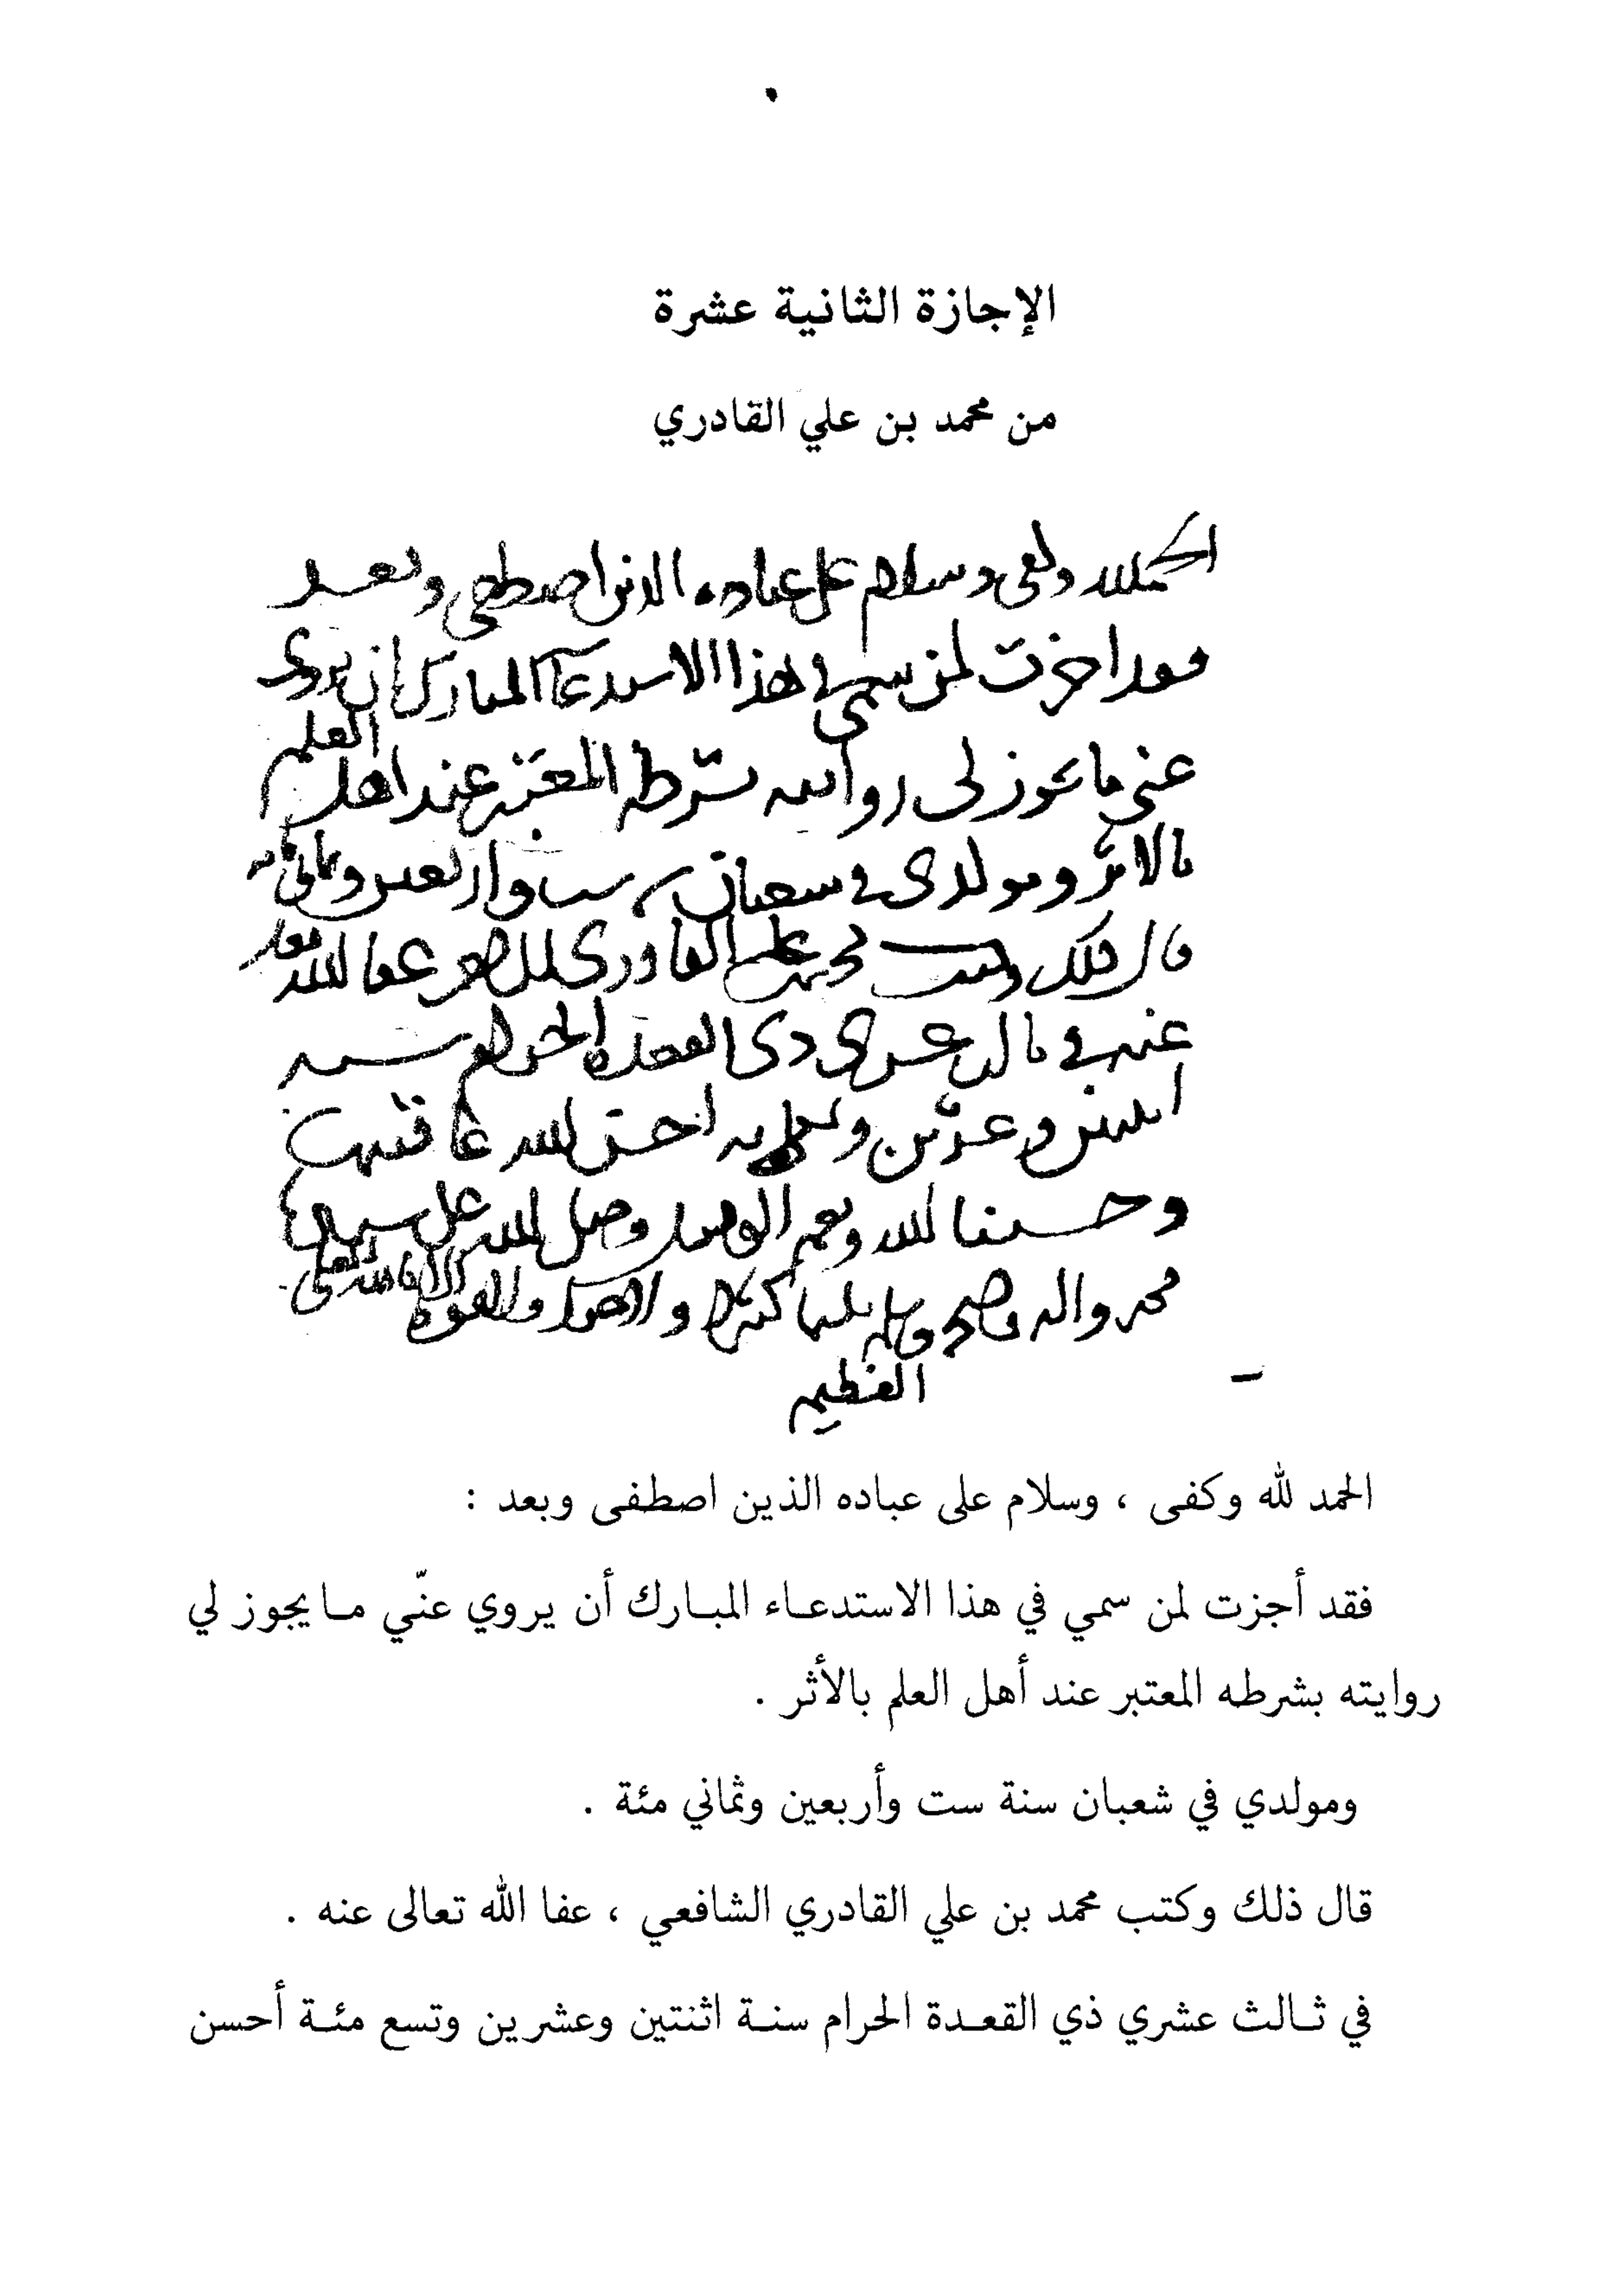 الإجازة الثانية عشرة
من محمد بن علي القادري
الحمد لله وكفى وسلام على عباده الذين اصطفى وبعد
فقد اجزت لمن سمي في هذا الاستدعا المبارك ان يروى
عني ما يجوز لى روايته بشرطه المعتبر عند اهل العلم
بالاثر ومولدى في شعبان سنة ست واربعين وثماني مايه
قال ذلك وكتب محمد بن علي القادرى الشافعي عفا الله تعالى
عنه في ثالث عشرى ذى القعده الحرام سنه
اثنتين وعشرين وتسع مايه احسن الله عاقبتها
وحسبنا الله ونعم الوكيل وصلى الله على سيدنا
محمد واله وصحبه وسلم تسليما كثيرا ولا حول ولا قوة الا بالله العلى
العظيم
الحمد لله وكفى ، وسلام على عباده الذين اصطفى وبعد :
فقد أجزت لمن سمي في هذا الاستدعاء المبارك أن يروي عنّي ما يجوز لي
روايته بشرطه المعتبر عند أهل العلم بالأثر .
ومولدي في شعبان سنة ست وأربعين وثماني مئة .
قال ذلك وكتب محمد بن علي القادري الشافعي ، عفا الله تعالى عنه .
في ثالث عشري ذي القعدة الحرام سنة اثنتين وعشرين وتسع مئة أحسن